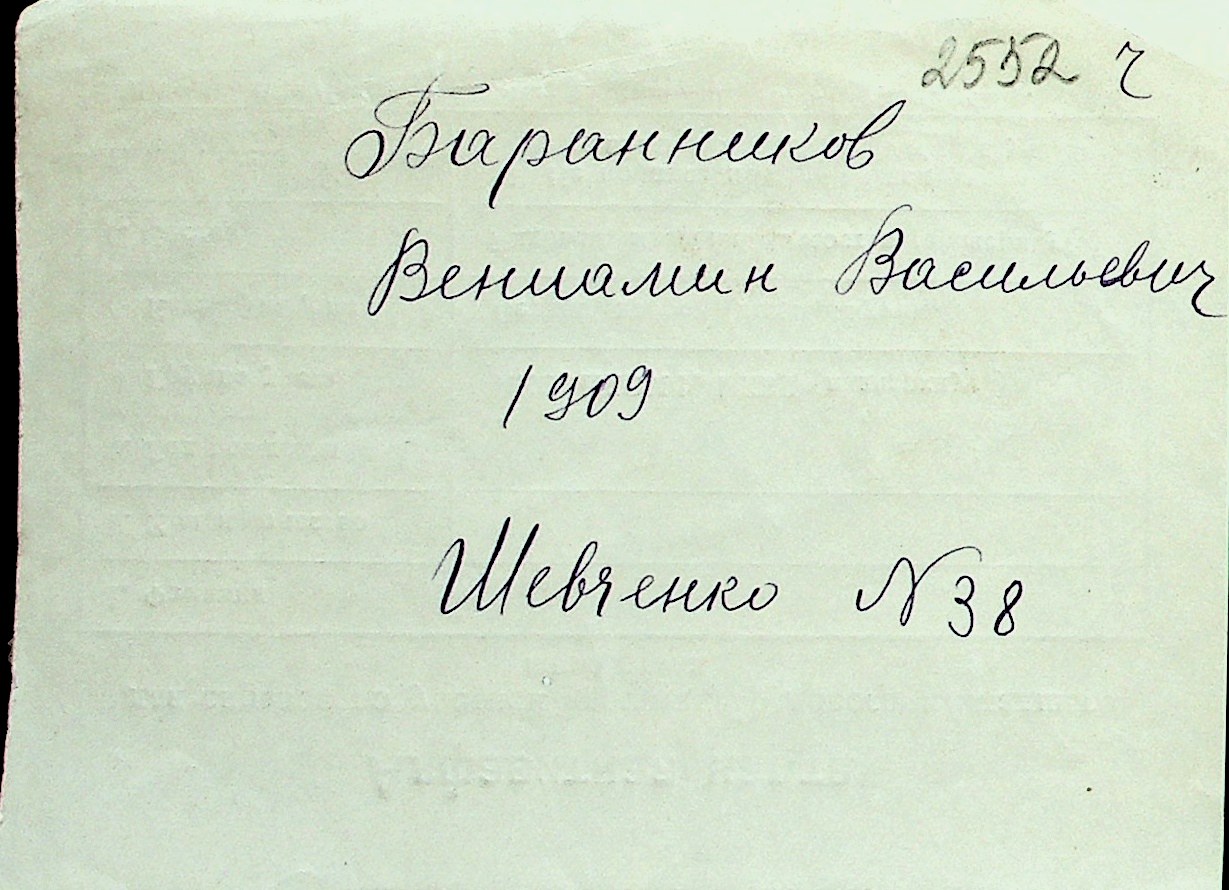 2552 ч
Баранников
Вениамин Васильевич
1909
Шевченко N 38